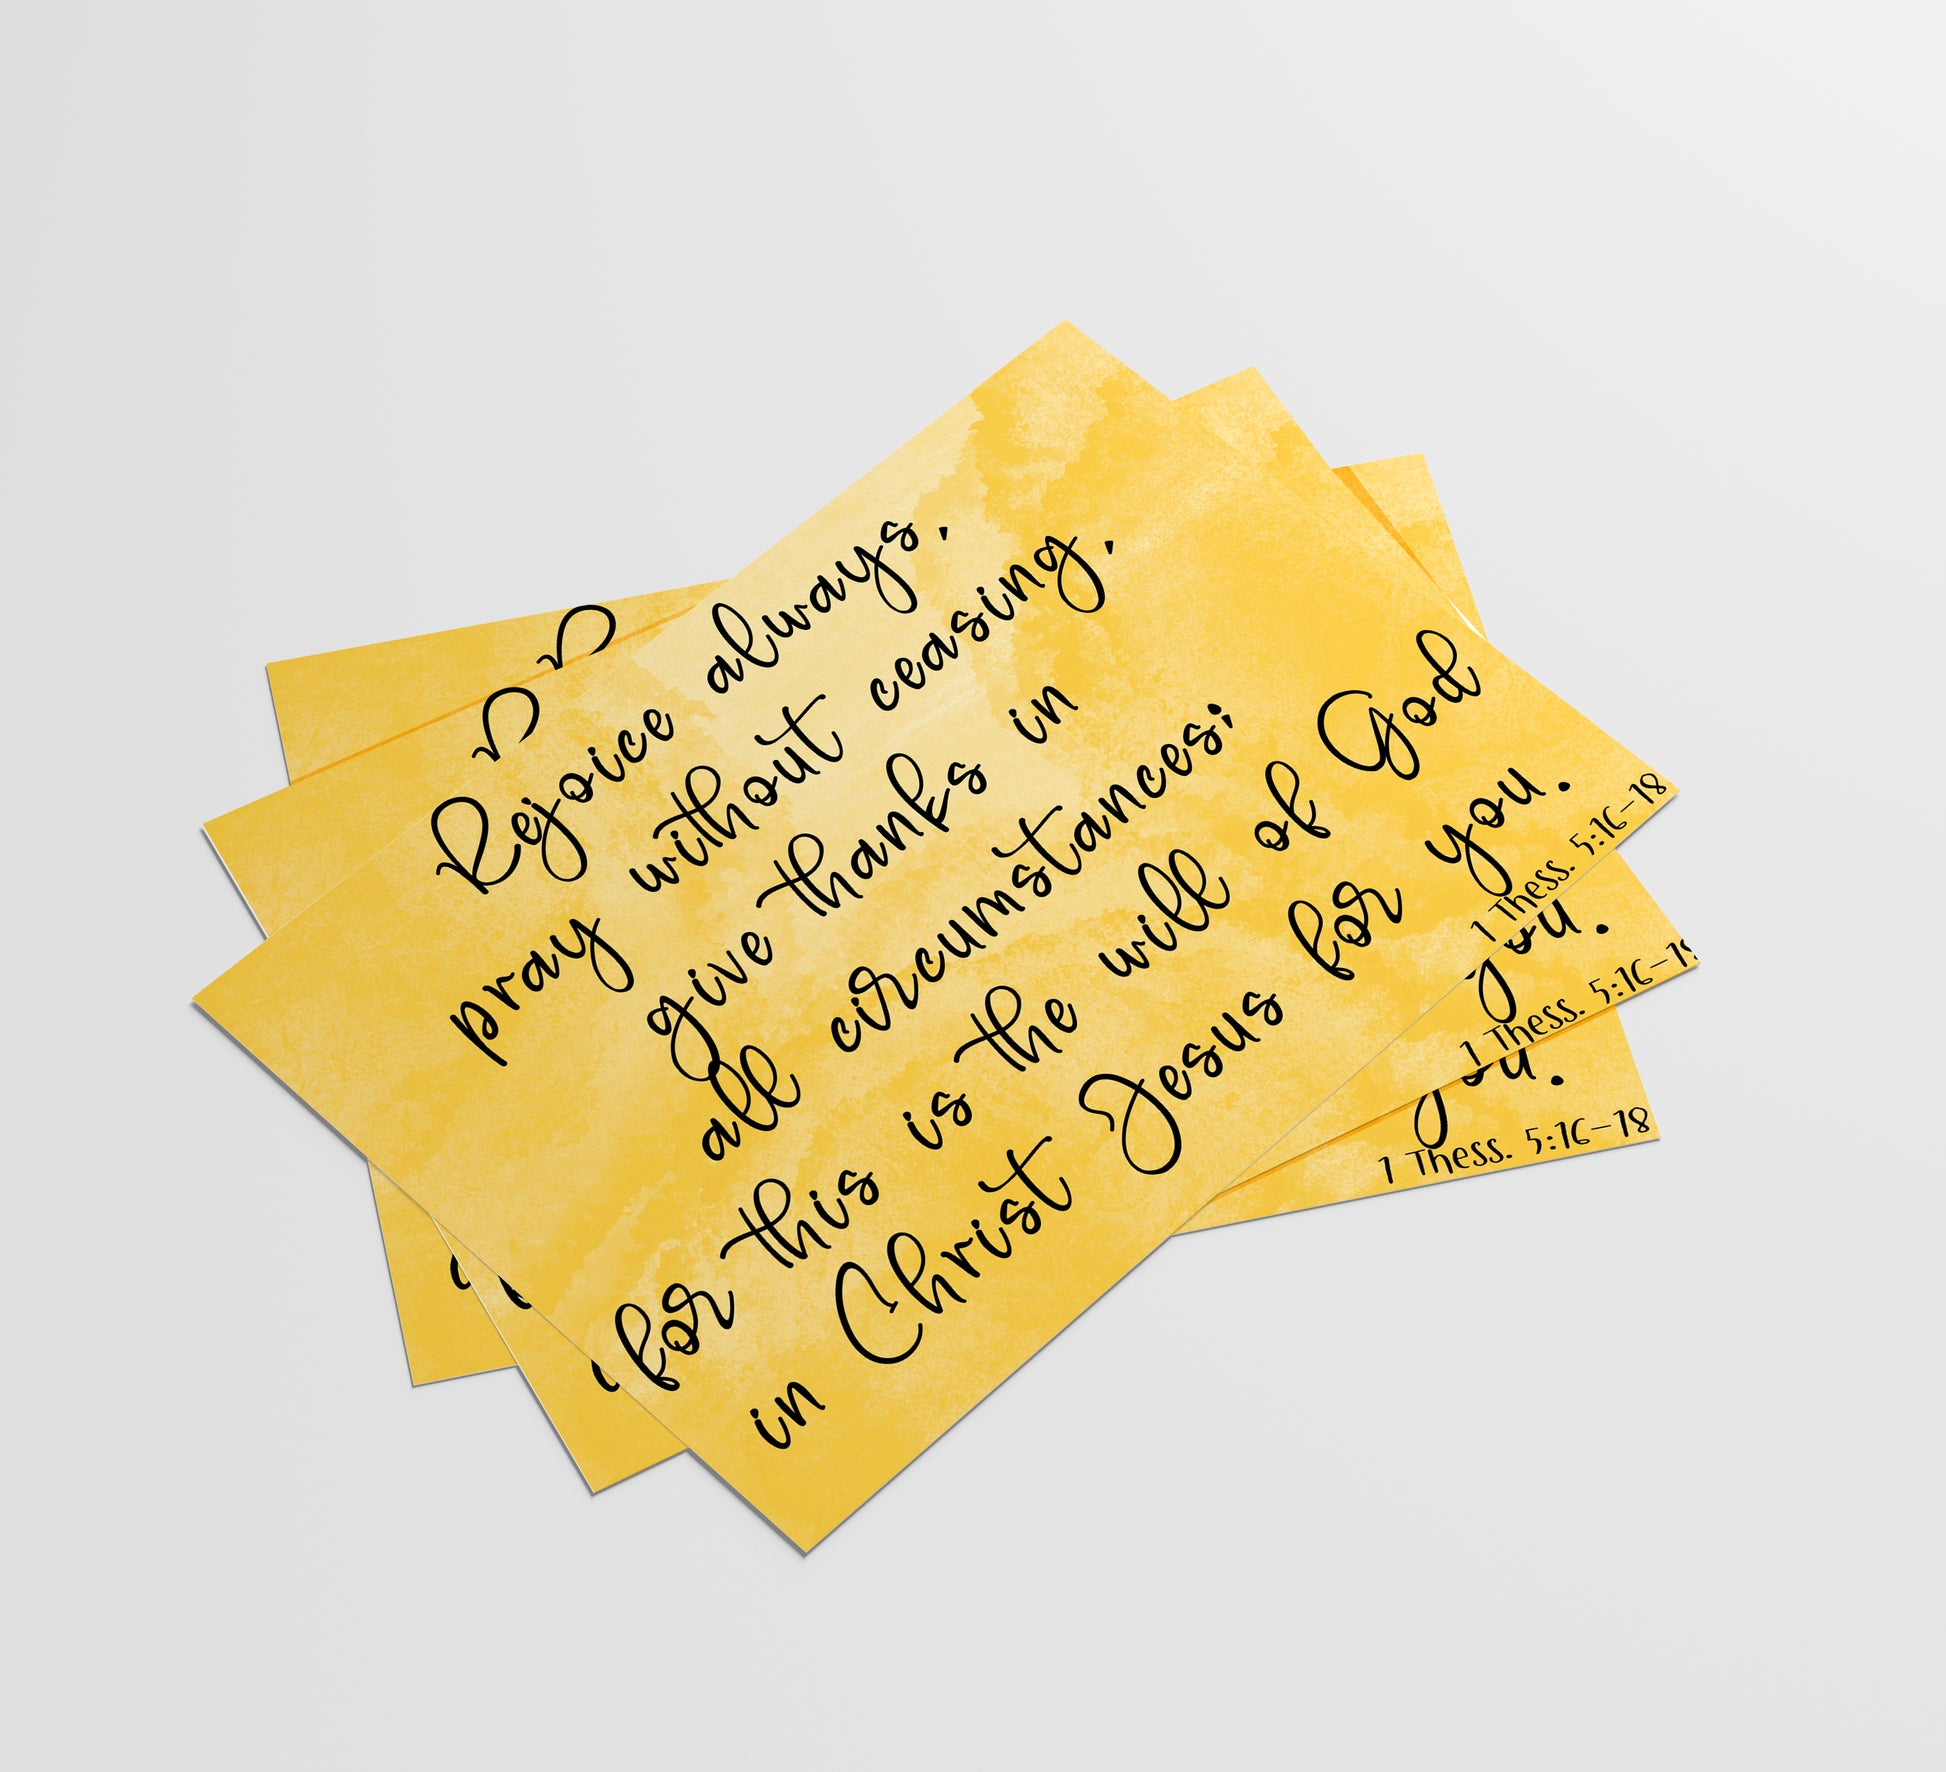 Rejoice always,
pray without ceasing,
give thanks in
all circumstances;
for this is the will of God
in Christ Jesus for you.
1 Thess. 5:16-18
you.
1 Thess. 5:16-18
you.
1 Thess. 5:16-18